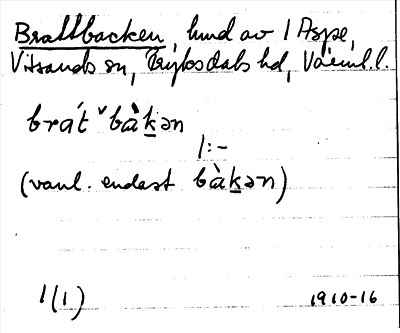 Brattbacken, hund av 1 Aspe,
Vitsands sn, Fryksdals hd, Värml. l.
brát ˇbàkən
/:-
(vanl. endast bàkən)
1(1) 1910-16